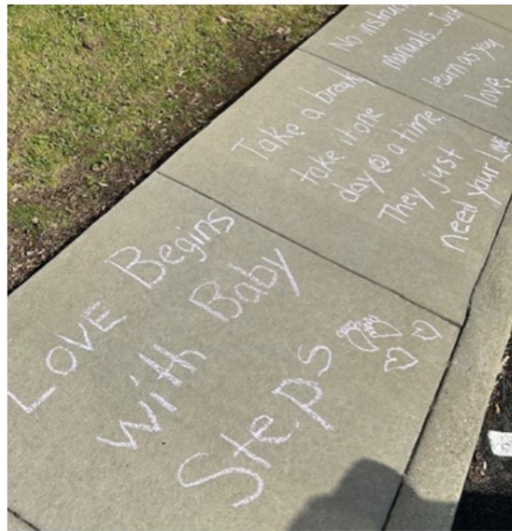 LOVE Begins
with Baby
Steps
Take a break
take it one
day @ a time.
They just
need your Love
No instruction
manuals... Just
learn as you
love.